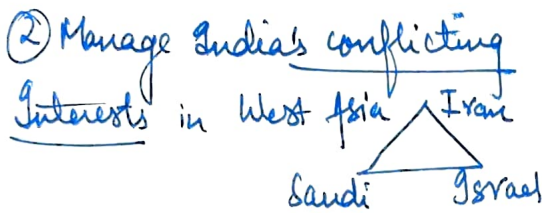 ② Manage India's conflicting
Interests in West Asia Iran
Saudi Israel